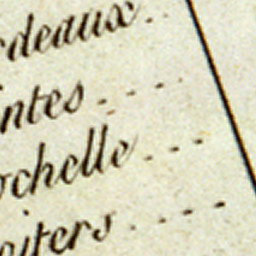 rdeaux. .
intes - - - -
ochelle - - -
oiters - - - -